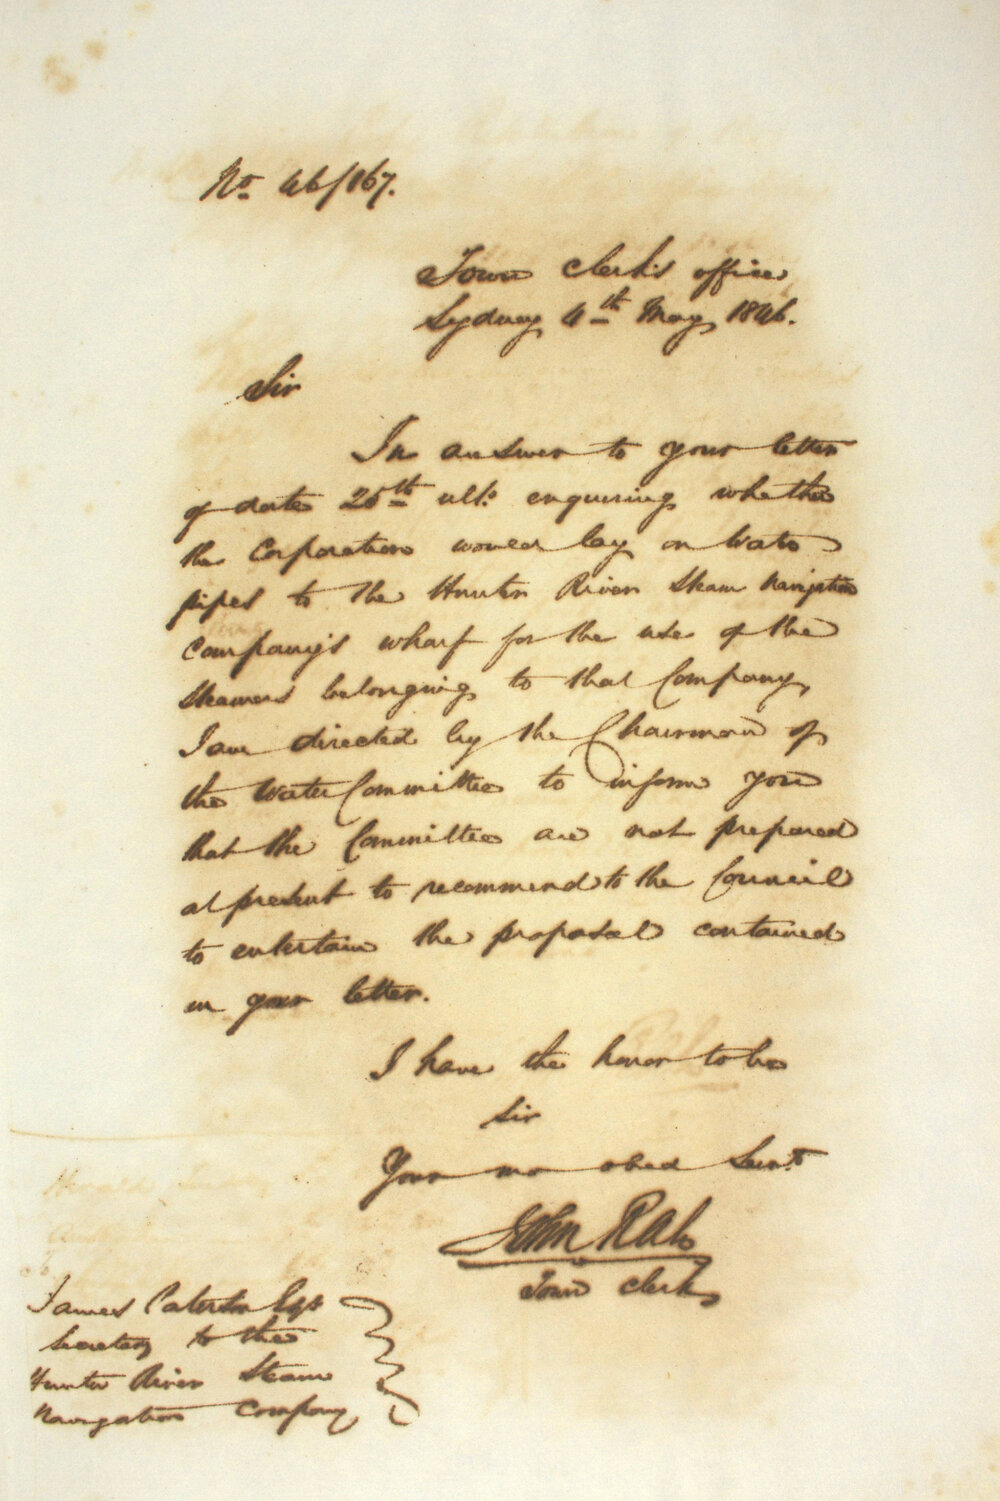 No. 46/167.
Town Clerk's office
Sydney 4th May 1846.
Sir
In answer to your letter
of date 25th ulto. enquiring whether
the Corporation would lay on Water
pipes to the Hunter River Steam Navigation
Company's wharf for the use of the
Steamers belonging to that Company,
I am directed by the Chairman of
the Water Committee to inform you
that the Committee are not prepared
at present to recommend to the Council
to entertain the proposal contained
in your letter.
I have the honor to be
Sir
Your mo obed Servt
John Rae
Town Clerk
To
James Paterson Esqr
Secretary to the
Hunter River Steam
Navigation Company